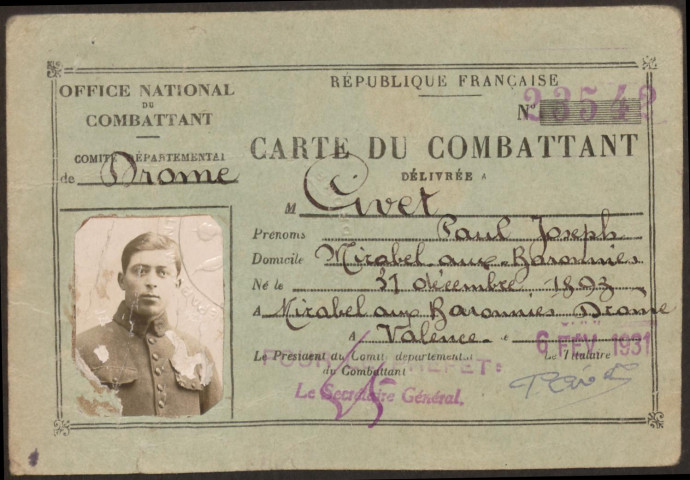 OFFICE NATIONAL
DU
COMBATTANT
COMITÉ DÉPARTEMENTAL
de Drome
RÉPUBLIQUE FRANÇAISE
No 23542
CARTE DU COMBATTANT
DÉLIVRÉE A
M Civet
Prénoms Paul Joseph
Domicile Mirabel aux Baronnies
Né le 31 décembre 1893
A Mirabel aux Baronnies Drome
A Valence le 6 FÉV. 1931
Le Président du Comité départemental
du Combattant
Le Titulaire
POUR PRÉFET:
Le Secrétaire Général.